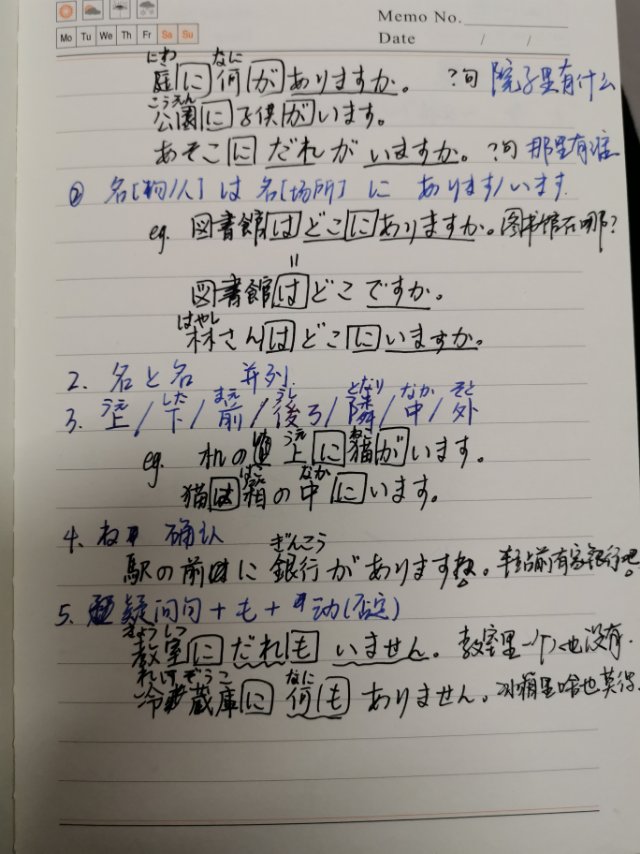 Memo No.
Mo Tu We Th Fr Sa Su
Date / /
にわ なに
庭に何がありますか。 ?句 院子里有什么
こうえん
公園に子供がいます。
あそこにだれがいますか。 ?句 那里有谁
② 名[物/人] は 名[场所] に あります/います.
eg. 図書館はどこにありますか。图书馆在哪?
=
図書館はどこですか.
はやし
林さんはどこにいますか.
2. 名と名 并列.
うえ した まえ うし となり なか そと
3. 上/下/前/後ろ/隣/中/外
うえ ねこ
eg. 机の上に猫がいます。
はこ なか
猫は箱の中にいます。
4. ね 确认
ぎんこう
駅の前に銀行がありますね。车站前有家银行吧。
5. 疑问句+も+动(否定)
きょうしつ
教室にだれもいません. 教室里一个也没有.
れいぞうこ なに
冷蔵庫に何もありません. 冰箱里啥也莫得.